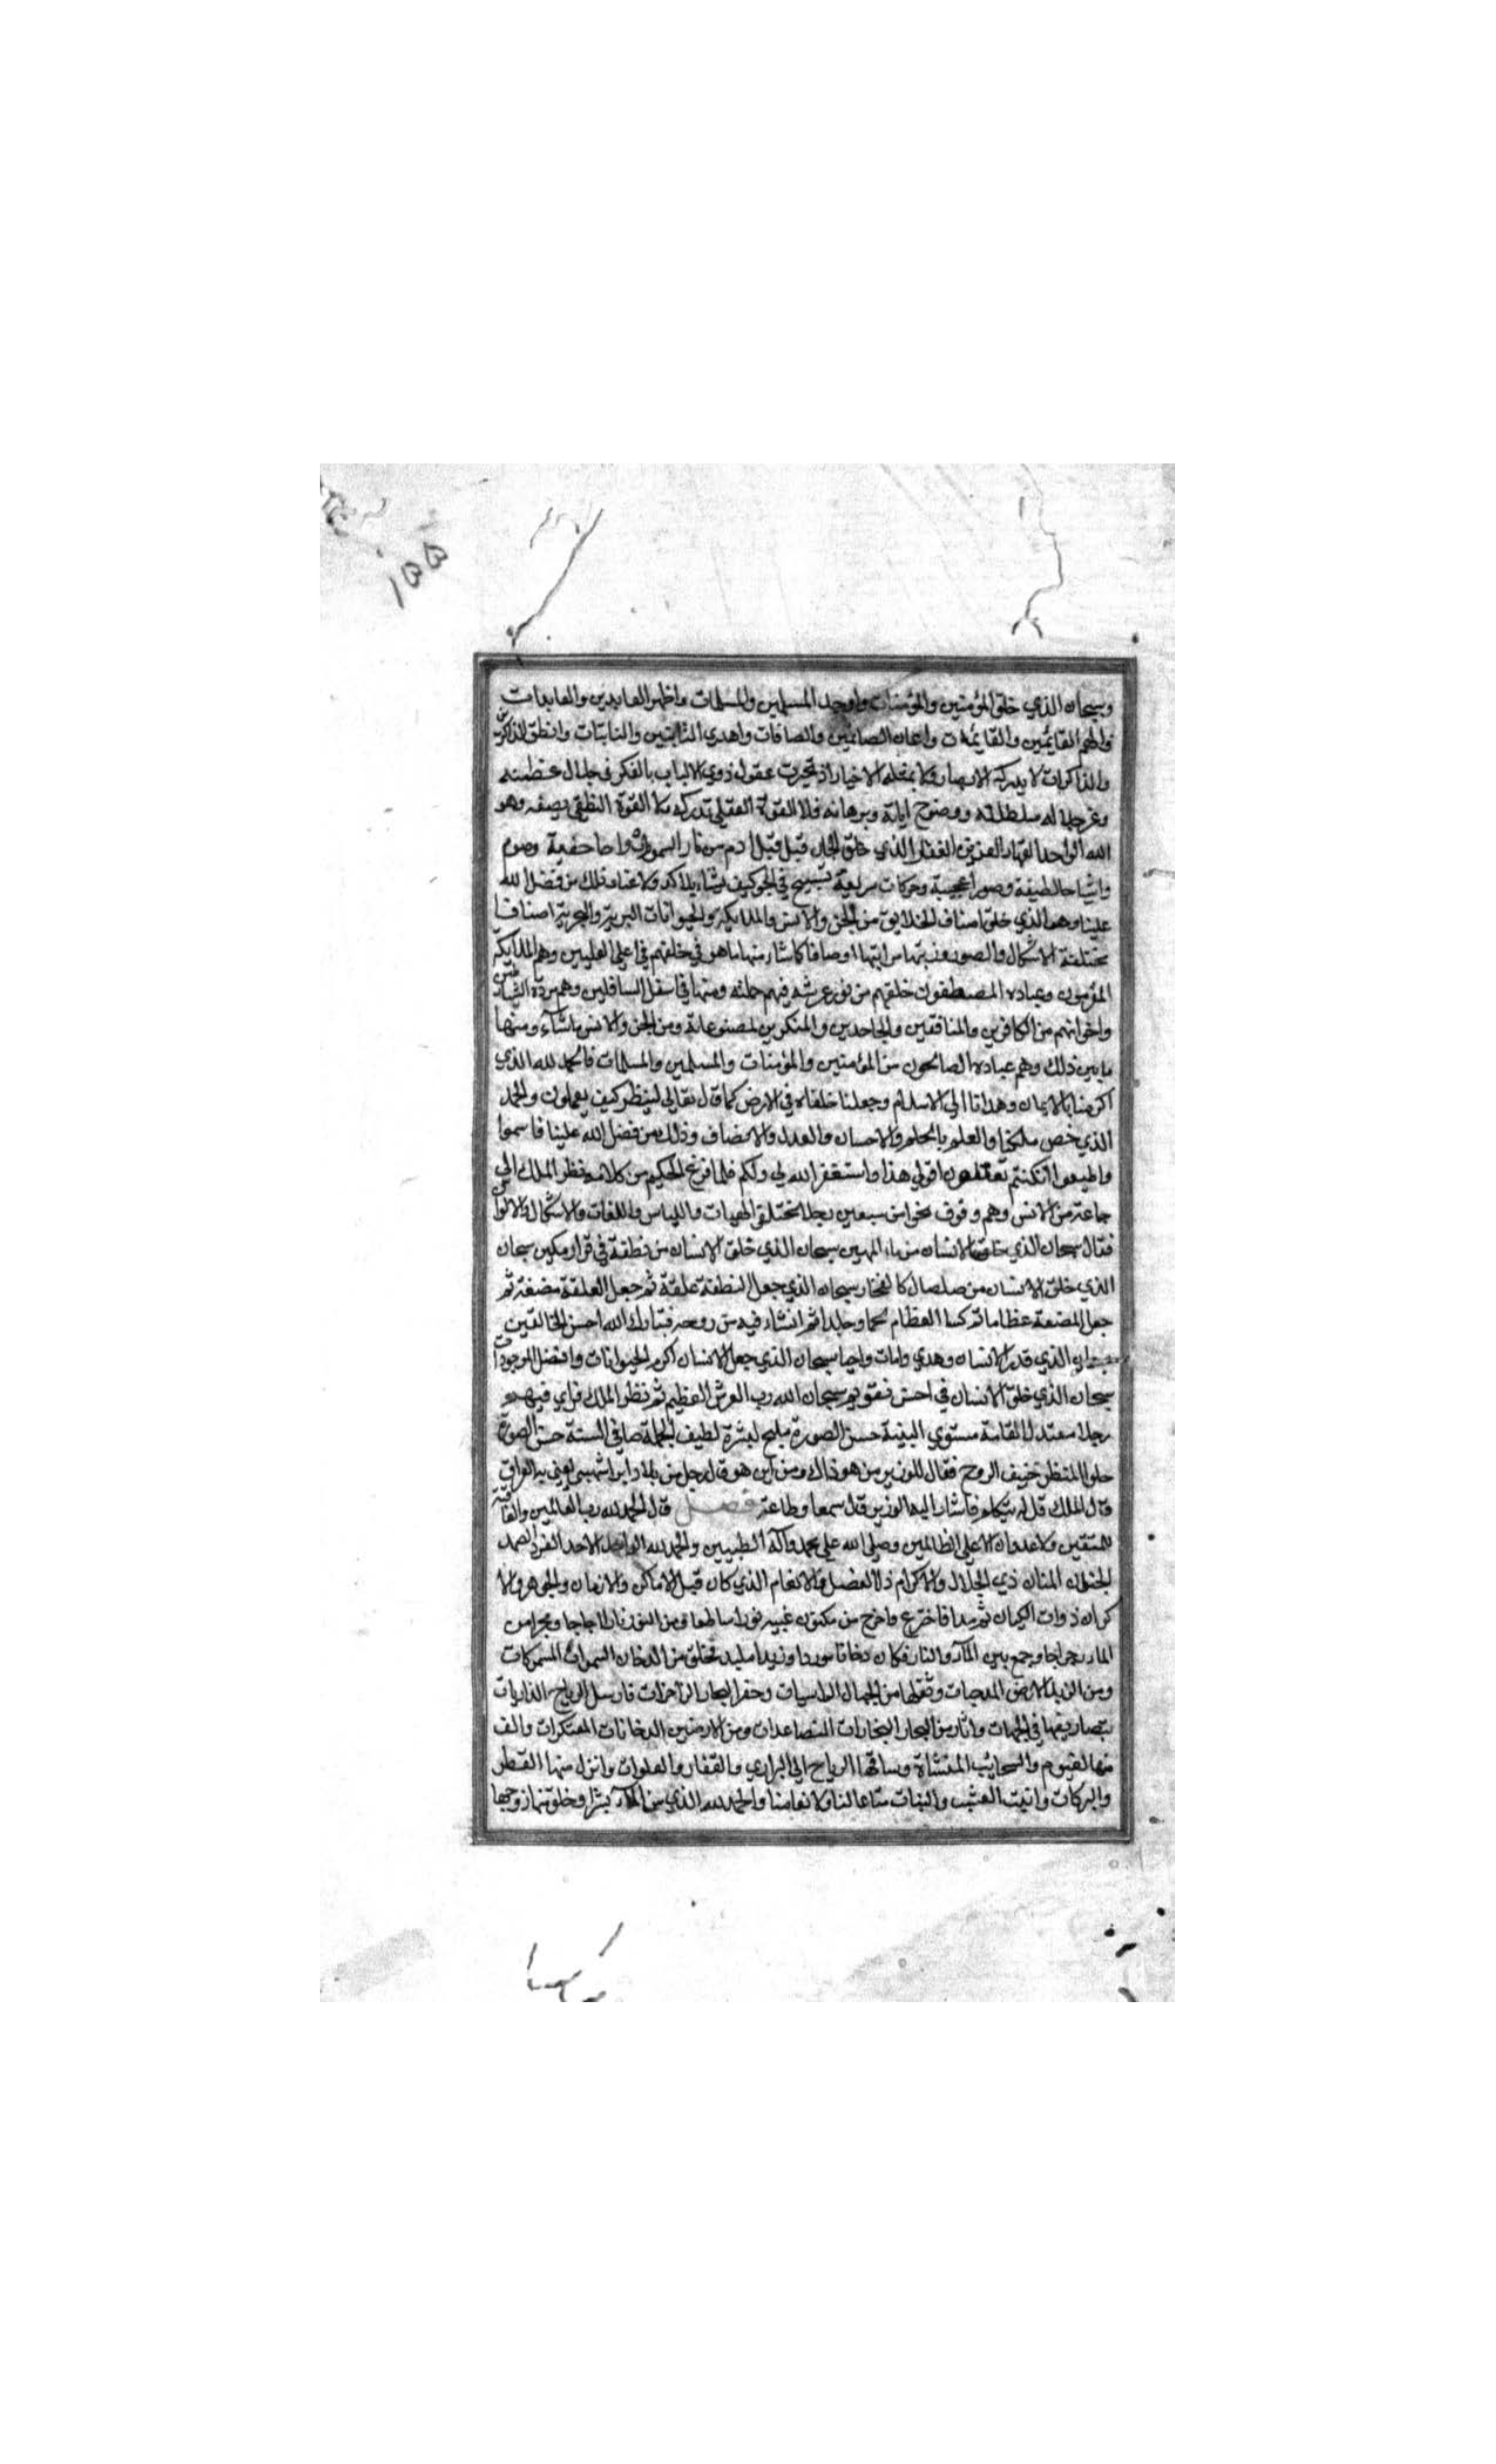 ١٥٥
وسبحان الذي خلق المؤمنين والمؤمنات واوجد المسلمين والمسلمات واظهر العابدين والعابدات
والهم القايمين والقايمات واعان الصايمين والصافات واهدي التايبين والتايبات وانطق الذاكرين
والذاكرات لا يدركه الابصار ولا يمثله الاخيار اذ تحيرت عقول ذوي الالباب بالفكر في جلال عظمته
وعز جلاله سلطانه ووضوح اياته وبرهانه فلا القوة العقلي تدركه ولا القوة النطقي يصفه وهو
الله الواحد القهار العزيز الغفار الذي خلق الجان قبل ادم من نار السموم ارواحا خفية وصوم
واشباحا لطيفة وصورا عجيبة وحركات سريعة تسبح في الجو كيف يشاء بلا كد ولا عناء وذلك من فضل الله
علينا وهو الذي خلق اصناف الخلايق من الجن والانس والملايكة والحيوانات البرية والبحرية اصنافا
مختلفة الاشكال والصور ورتبها مراتبها اوصافا كما شاء منها ما هو في خلقهم في اعلي العليين وهم الملايكة
المقربون وعباده المصطفون خلقهم من نور عرشه فهم حملته ومنها في اسفل السافلين وهم مردة الشياطين
واخوانهم من الكافرين والمنافقين والجاحدين والمنكرين لمصنوعاته ومن الجن والانس ما شآء ومنها
ما بين ذلك وهم عباده الصالحون من المؤمنين والمؤمنات والمسلمين والمسلمات فالحمد لله الذي
اكرمنا بالايمان وهدانا الي الاسلام وجعلنا خلفاء في الارض كما قال تعالي لينظر كيف يعملون والحمد
الذي خص ملكنا والعلم بالحلم والاحسان والعدل والانصاف وذلك من فضل الله علينا فاسمعوا
واطيعوا ان كنتم تعقلون اقولي هذا واستغفر الله لي ولكم فلما فرغ الحكيم من كلامه نظر الملك الي
جماعة من الانس وهم وقوف نحوا من سبعين رجلا مختلفي الهيات واللباس واللغات والاشكال والالوان
فقال سبحان الذي خلق الانسان من ماء المهين سبحان الذي خلق الانسان من نطفة في قرار مكين سبحان
الذي خلق الانسان من صلصال كالفخار سبحان الذي جعل النطفة علقة ثم جعل العلقة مضغة ثم
جعل المضغة عظاما ثم كسا العظام لحما وجلدا ثم انشاء فيه من روحه فتبارك الله احسن الخالقين
سبحان الذي قدر الانسان وهدي وامات واحيا سبحان الذي جعل الانسان اكرم الحيوانات وافضل الموجودات
سبحان الذي خلق الانسان في احسن تقويم سبحان الله رب العرش العظيم ثم نظر الملك فراي فيهم
رجلا معتدل القامة مستوي البنية حسن الصورة مليح لبشرة لطيف الجملة صافي السنة حسن الصورة
حلو المنظر خفيف الروح فقال للوزير من هو ذاك ومن اين هو قال رجل من بلاد ايران شهر يعني به العراق
قال الملك قل له يتكلم فاشار اليه الوزير قال سمعا وطاعة فصل قال الحمد لله رب العالمين والعاقبة
للمتقين ولا عدوان الا علي الظالمين وصلي الله علي محمد وآله الطيبين والحمد لله الواحد الاحد الفرد الصمد
الحنان المنان ذي الجلال والاكرام ذا الفضل والانعام الذي كان قبل الاماكن والازمان والجوهر والا
كوان ذوات الكيان ثم بدا فاخترع واخرج من مكنون غيبه نورا ساطعا ومن النور نارا اجاجا وبحرا من
الماء رجراجا وجمع بين المآء والنار فكان دخانا موردا وزبدا ملبدا فخلق من الدخان السموات المسموكات
ومن الزبد الارض المدحيات وثقلها من الجبال الراسيات وحفر البحار الزاخرات فارسل الرياح الذاريات
بتصاريفها في الجهات واثار من البحار البخارات المتصاعدات ومن الارضين الدخانات المعتكرات والف
منها الغيوم والسحايب المنشاة وساقها الرياح الي البراري والقفار والفلوات وانزل منها القطر
والبركات وانبت العشب والنبات متاعا لنا ولانعامنا والحمد لله الذي من المآء بشرا وخلق منها زوجها